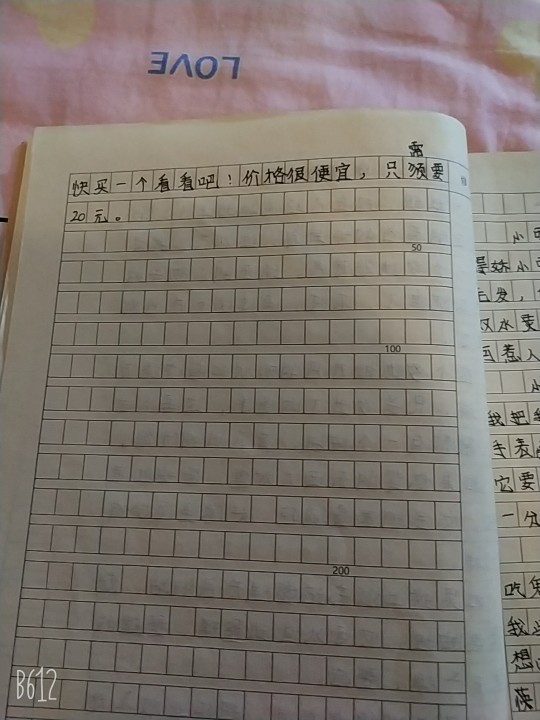 LOVE
需
快买一个看看吧！价格很便宜，只须要
20元。
50
100
200
小
小
毛发，
水
惹人
我把我
手
它要
一分
吃
我
想
筷
B612